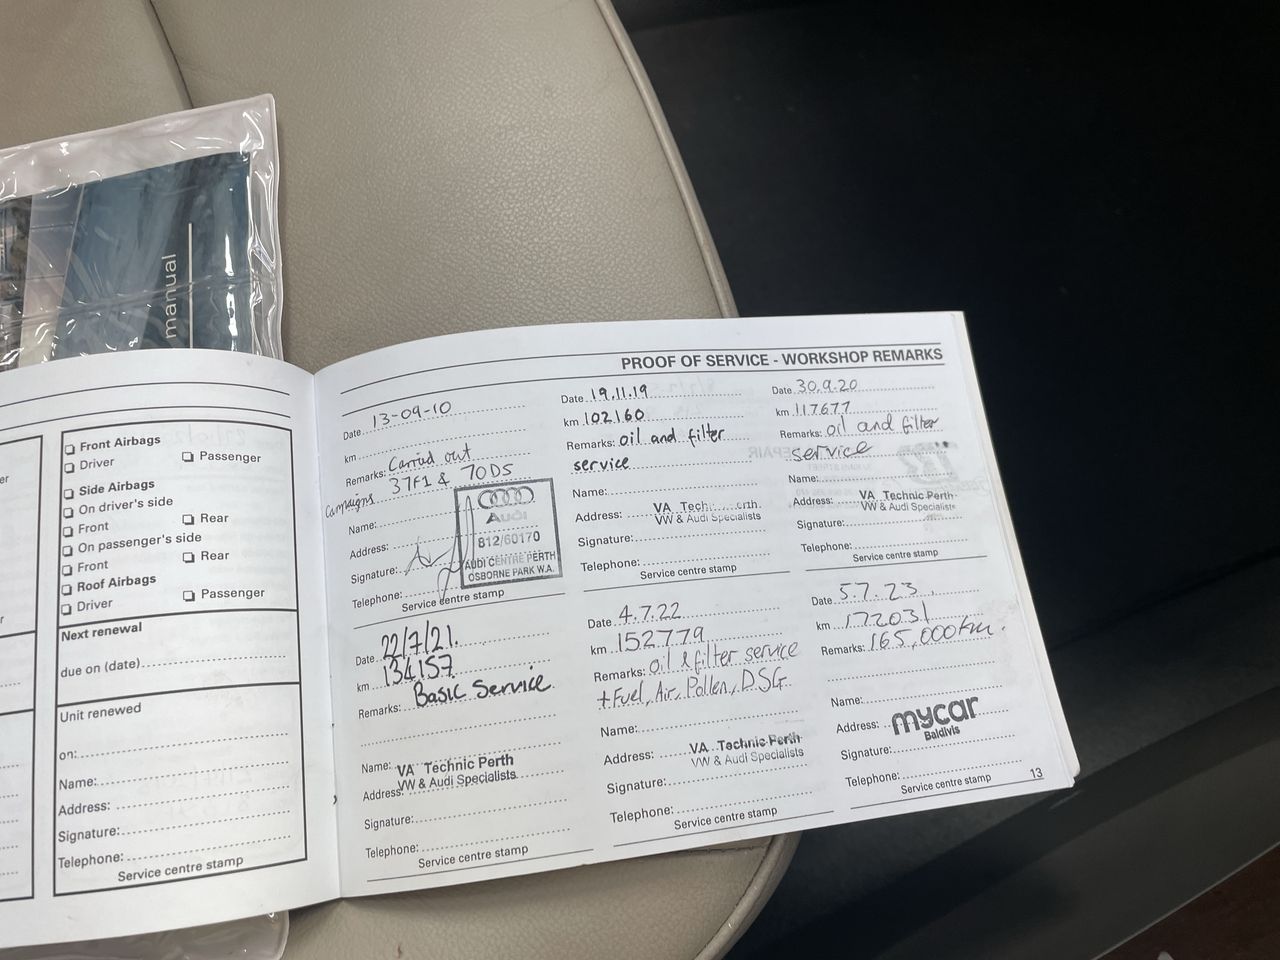 manual
er
r
Front Airbags
Driver
Passenger
Side Airbags
On driver's side
Front
Rear
On passenger's side
Front
Rear
Roof Airbags
Driver
Passenger
Next renewal
due on (date)
Unit renewed
on:
Name:
Address:
Signature:
Telephone:
Service centre stamp
PROOF OF SERVICE - WORKSHOP REMARKS
Date 13-09-10
km
Remarks: Carried out
Campaigns 37F1 & 70D5
Name:
Address:
Signature:
Telephone:
Audi
812/60170
AUDI CENTRE PERTH
OSBORNE PARK W.A.
Service centre stamp
Date 19.11.19
km 102160
Remarks: oil and filter
service
Name:
Address:
VA Tech erth
VW & Audi Specialists
Signature:
Telephone:
Service centre stamp
Date 30.9.20
km 117677
Remarks: oil and filter
service
Name:
Address: VA Technic Perth
VW & Audi Specialists
Signature:
Telephone:
Service centre stamp
Date 22/7/21.
km 134157
Remarks: Basic Service
Name: VA Technic Perth
Address: VW & Audi Specialists
Signature:
Telephone:
Service centre stamp
Date 4.7.22
km 152779
Remarks: oil & filter service
+ Fuel, Air, Pollen, DSG
Name:
Address: VA Technic Perth
VW & Audi Specialists
Signature:
Telephone:
Service centre stamp
Date 5.7.23
km 172031
Remarks: 165,000km.
Name:
Address: mycar
Baldivis
Signature:
Telephone:
Service centre stamp
13